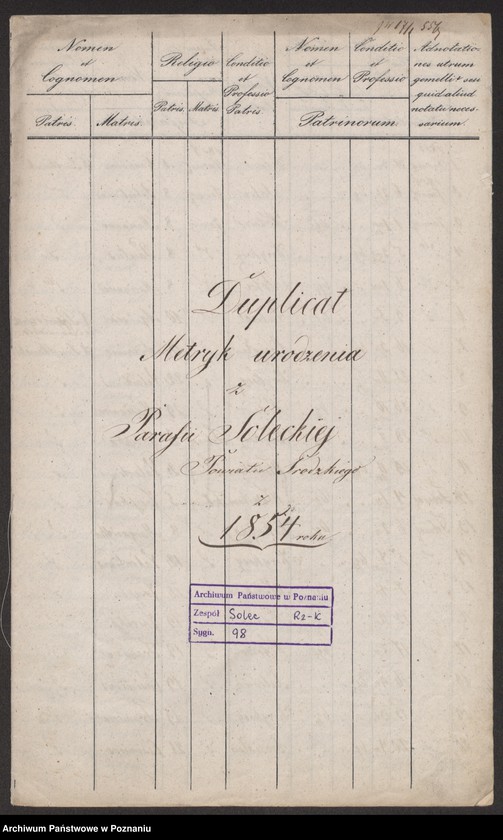 Nomen et Cognomen
Patris. Matris.
Religio
Patris. Matris
Conditio et Professio Patris.
Nomen et Cognomen
Conditio et Professio
Patrinorum.
Adnotatio-
nes utrum
gemelli et seu
quid aliud
notatu neces-
sarium.
Duplicat
Metryk urodzenia
z
Parafii Soleckiej
Powiatu Srodzkiego
z
1854 roku
Archiwum Państwowe w Poznaniu
Zespół Solec Rz-K
Sygn. 98
Archiwum Państwowe w Poznaniu